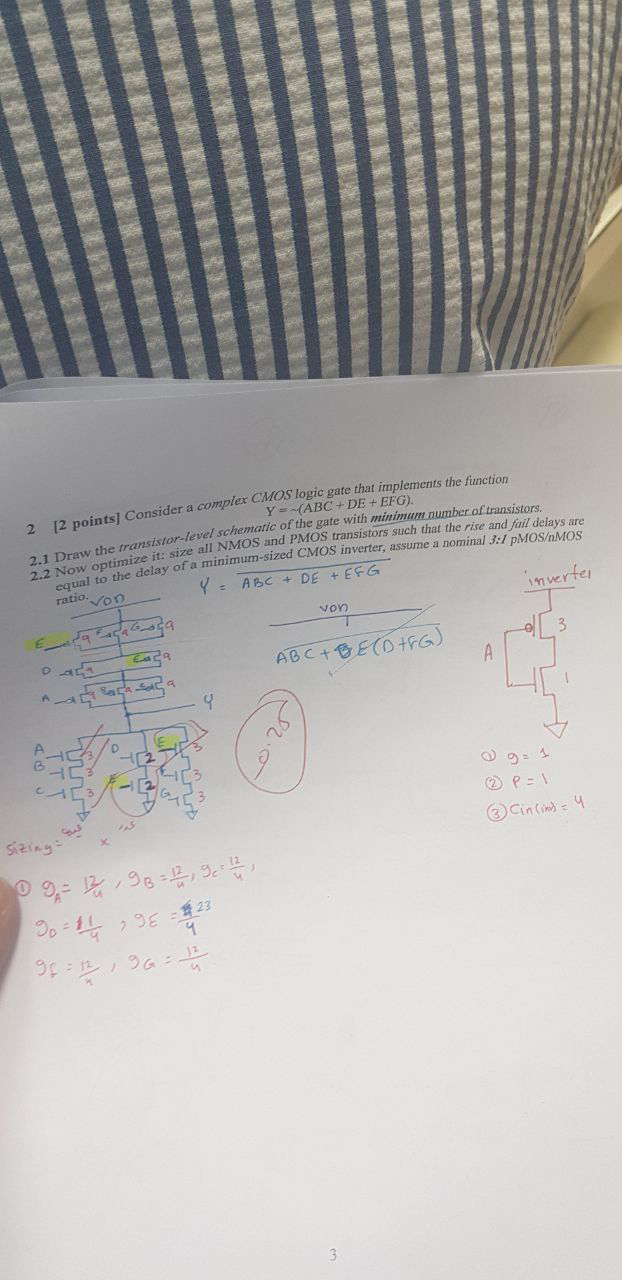 2 [2 points] Consider a complex CMOS logic gate that implements the function
Y = ~(ABC + DE + EFG).
2.1 Draw the transistor-level schematic of the gate with minimum number of transistors.
2.2 Now optimize it: size all NMOS and PMOS transistors such that the rise and fall delays are
equal to the delay of a minimum-sized CMOS inverter, assume a nominal 3:1 pMOS/nMOS
ratio.
Y = ABC + DE + EFG
VDD
VDD
ABC + E(D+FG)
inverter
3
A
1
① g = 1
② P = 1
③ Cin(inv) = 4
E 9 F 9 G 9
D 9 E 9
A 9 9 9
Y
A 3 D 2 E 3
B 3 E 2 3
C 3 G 3
Sizing = x
① gA = 12/4 , gB = 12/4 , gC = 12/4 ,
gD = 11/4 , gE = 23/4
gF = 12/4 , gG = 12/4
3